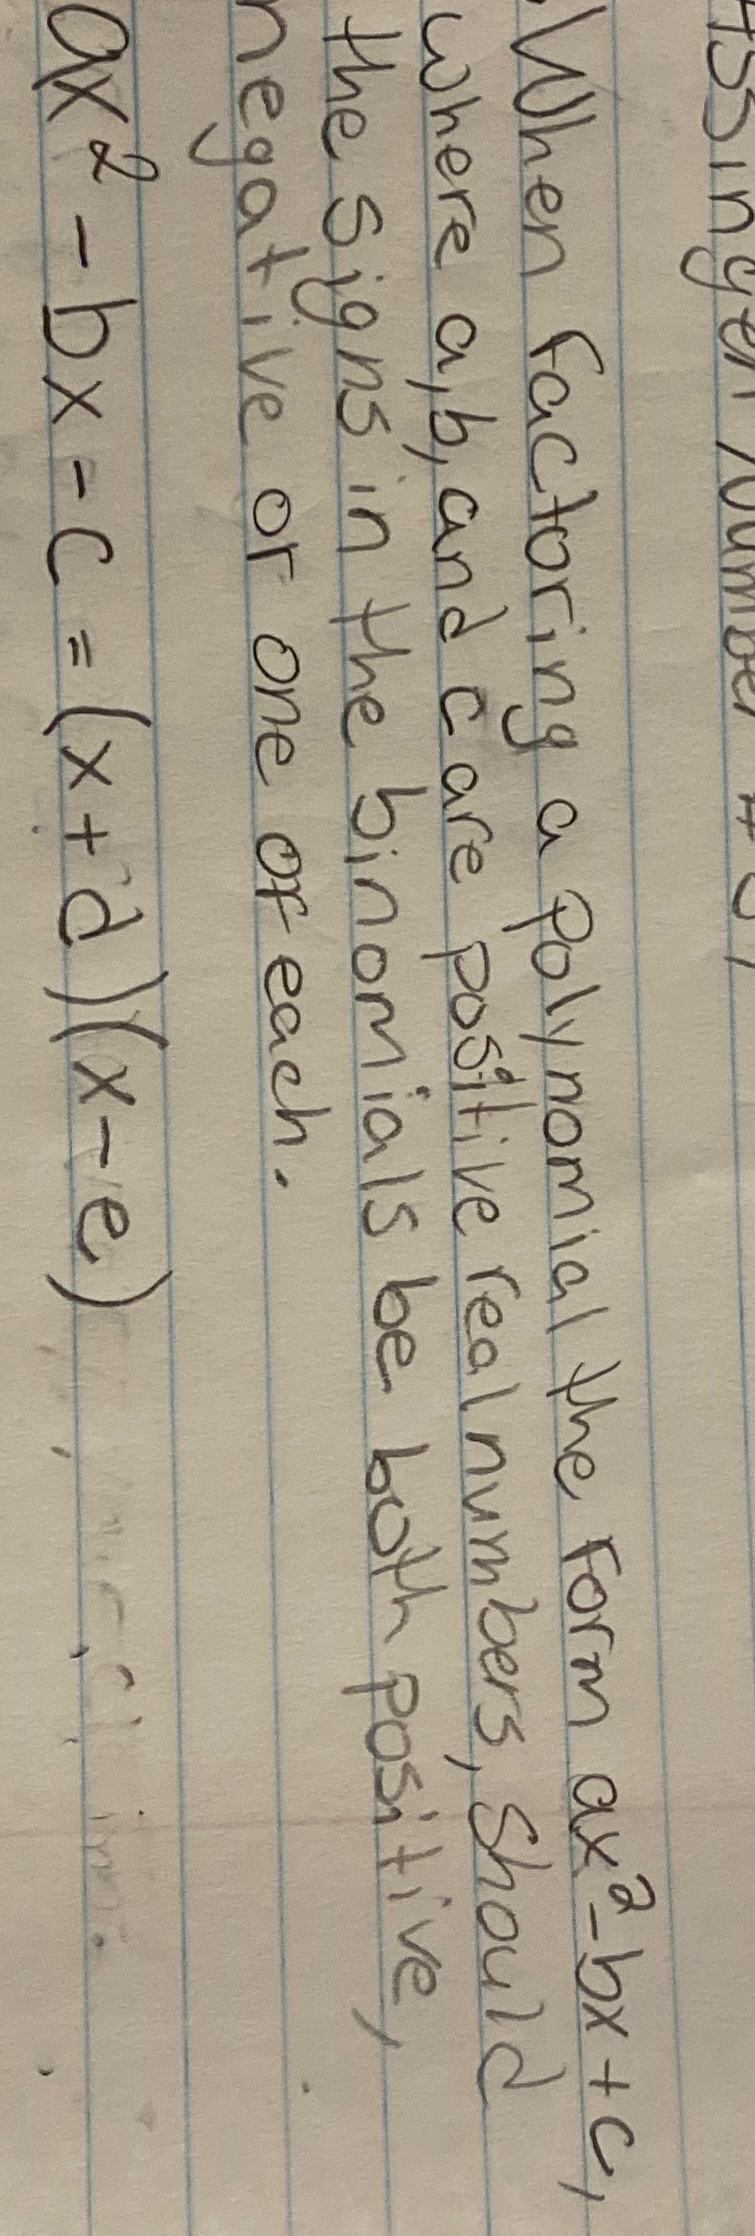 . When factoring a polynomial the form ax² - bx + c,
where a, b, and c are positive real numbers, should
the signs in the binomials be both positive,
negative or one of each.
ax² - bx - c = (x + d)(x - e)